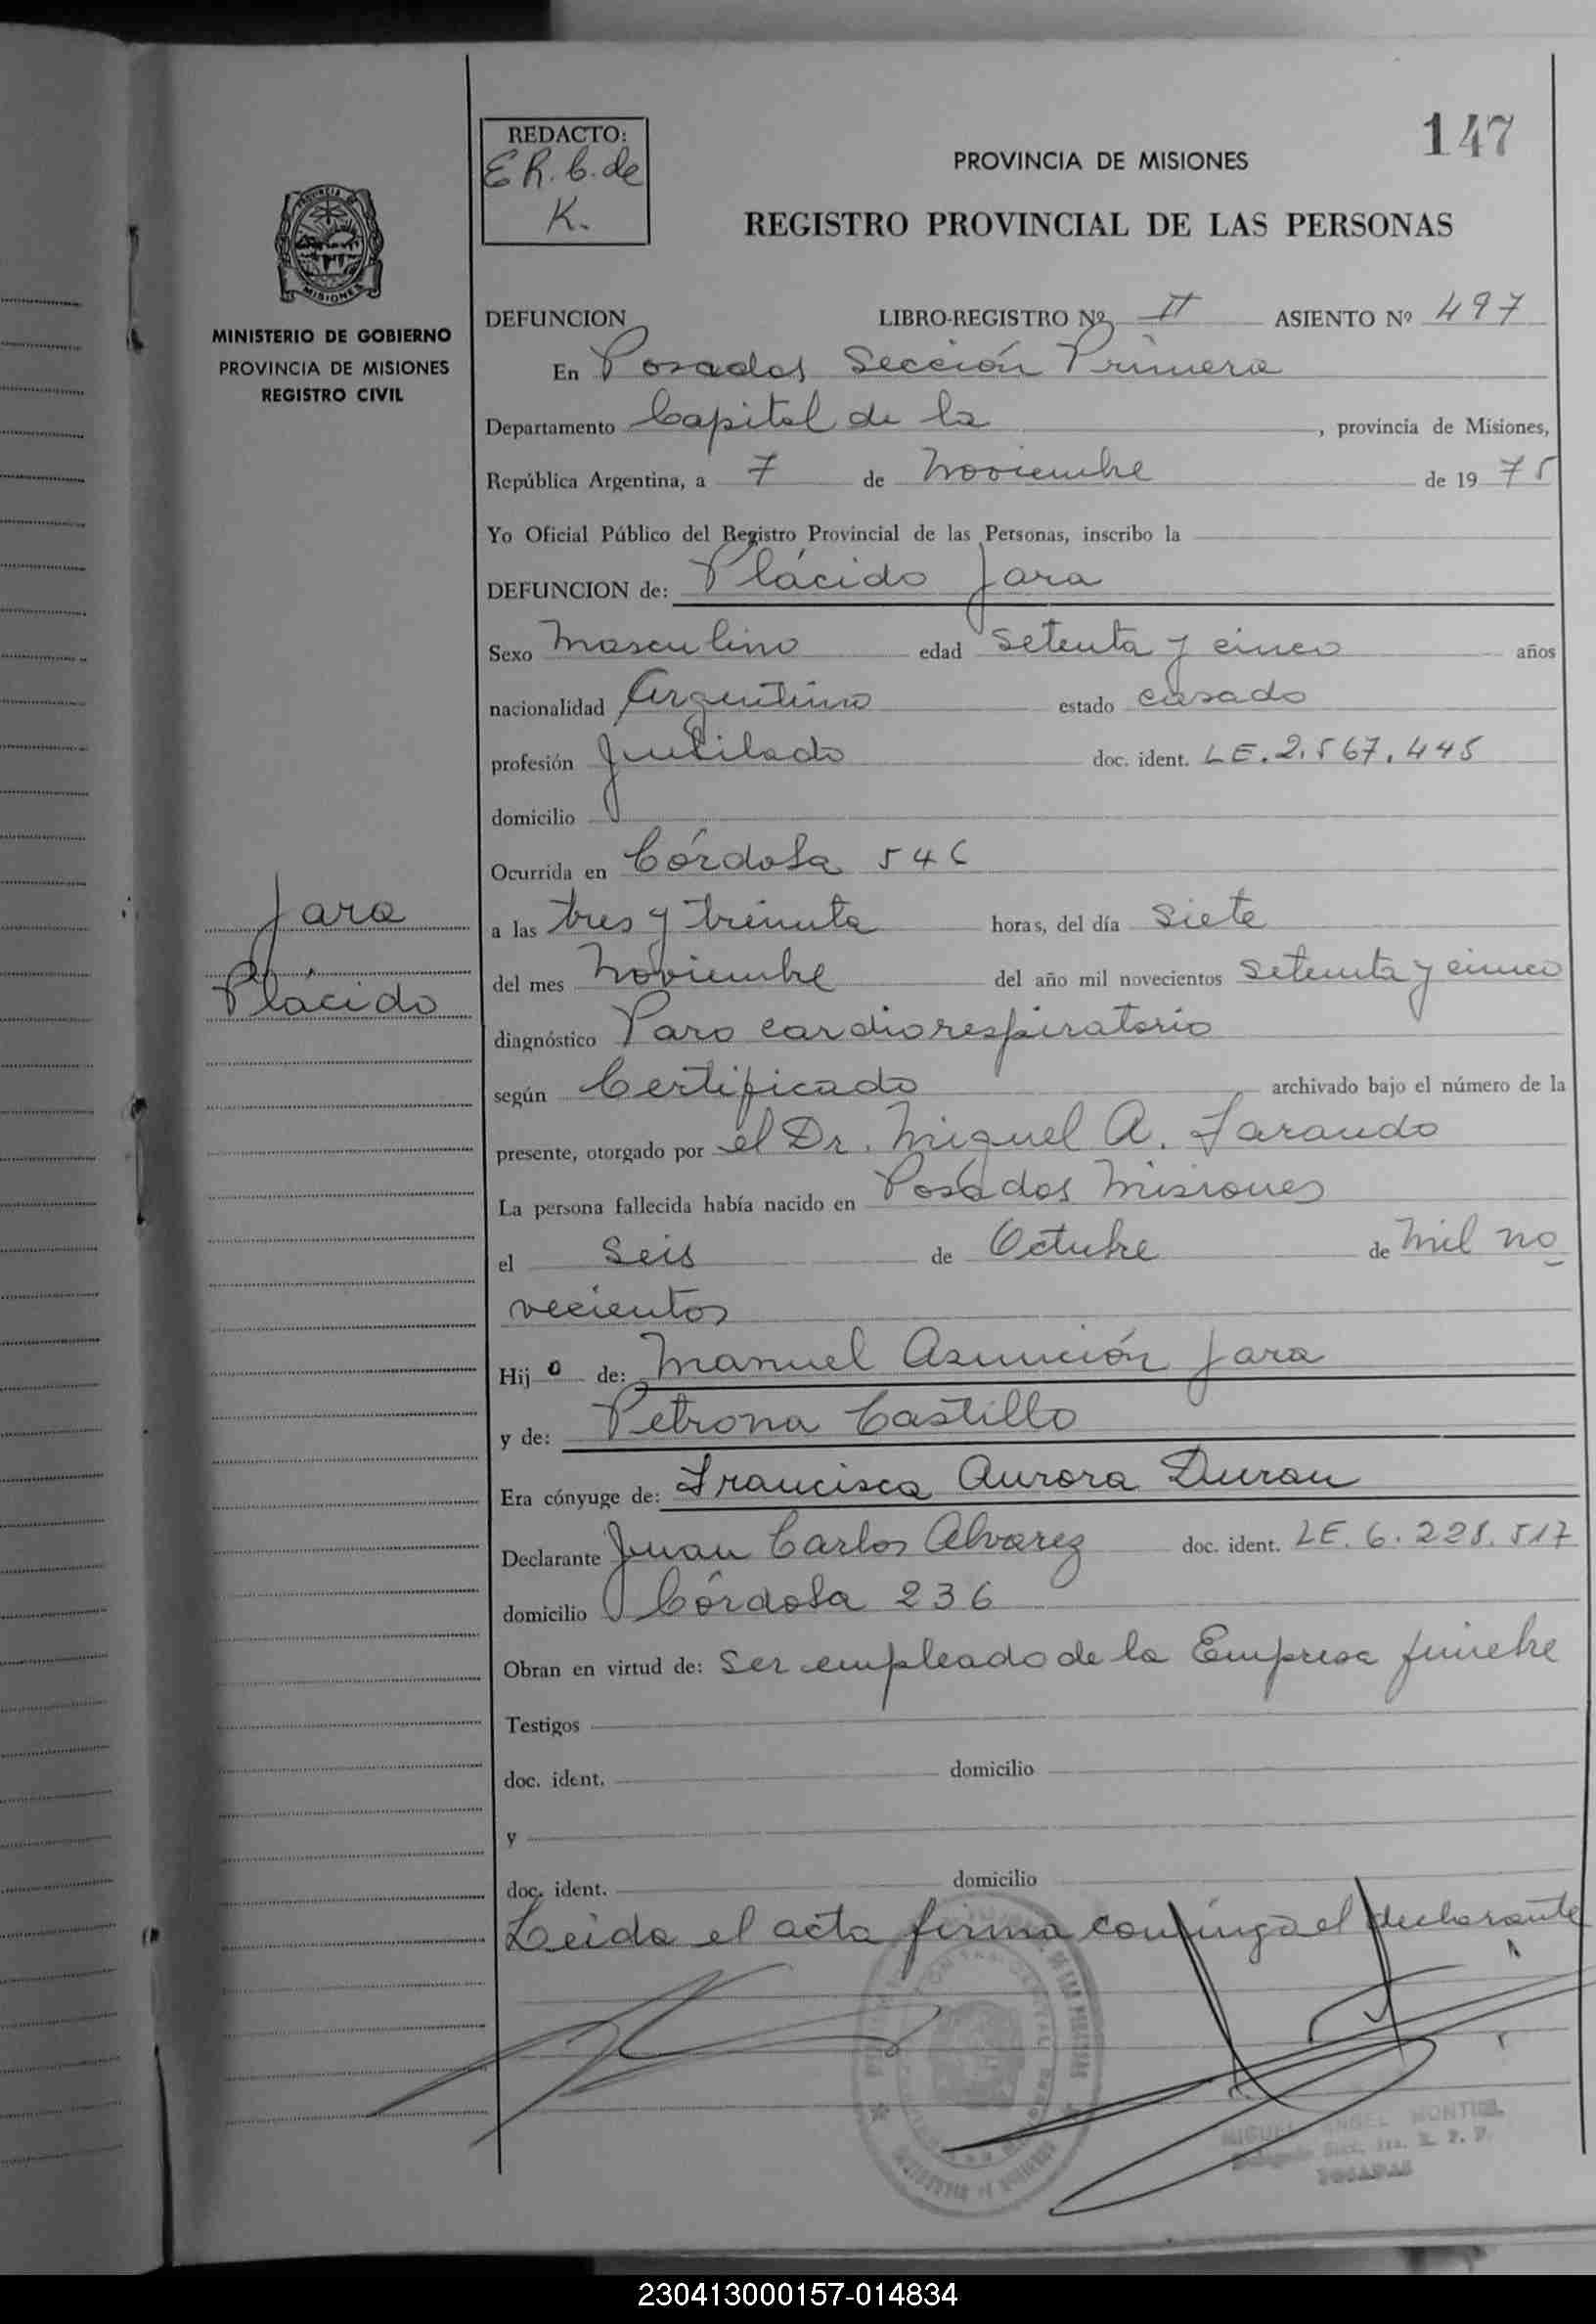 147
REDACTO:
E R. C. de
K.
PROVINCIA DE MISIONES
REGISTRO PROVINCIAL DE LAS PERSONAS
PROVINCIA DE
MISIONES
MINISTERIO DE GOBIERNO
PROVINCIA DE MISIONES
REGISTRO CIVIL
DEFUNCION LIBRO-REGISTRO Nº II ASIENTO Nº 497
En Posadas Sección Primera
Departamento Capital de la , provincia de Misiones,
República Argentina, a 7 de Noviembre de 19 75
Yo Oficial Público del Registro Provincial de las Personas, inscribo la
DEFUNCION de: Plácido Jara
Sexo Masculino edad setenta y cinco años
nacionalidad Argentino estado casado
profesión Jubilado doc. ident. LE. 2.567.445
domicilio
Ocurrida en Córdoba 546
Jara
Plácido
a las tres y treinta horas, del día siete
del mes Noviembre del año mil novecientos setenta y cinco
diagnóstico Paro cardiorespiratorio
según Certificado archivado bajo el número de la
presente, otorgado por el Dr. Miguel A. Farando
La persona fallecida había nacido en Posadas Misiones
el seis de Octubre de Mil no
vecientos
Hij o de: Manuel Asunción Jara
y de: Petrona Castillo
Era cónyuge de: Francisca Aurora Duran
Declarante Juan Carlos Alvarez doc. ident. LE. 6.228.517
domicilio Córdoba 236
Obran en virtud de: Ser empleado de la Empresa fúnebre
Testigos
doc. ident. domicilio
y
doc. ident. domicilio
Leida el acta firma conmigo el declarante
MIGUEL ANGEL MONTIEL
POSADAS
230413000157-014834